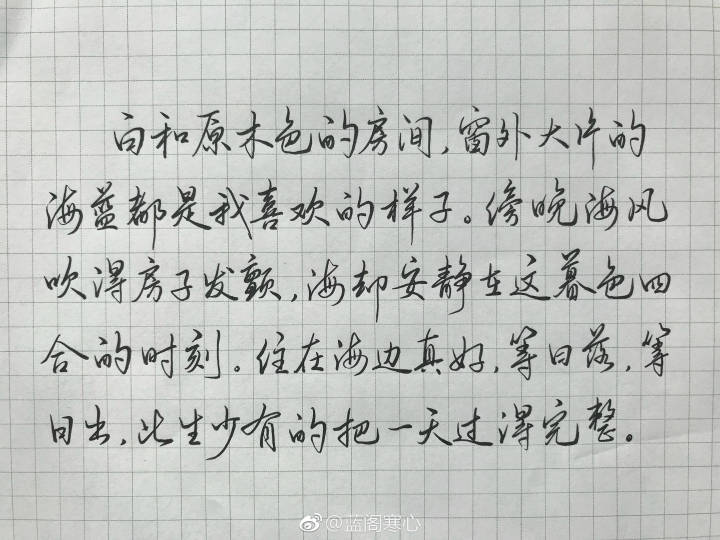 白和原木色的房间,窗外大片的
海蓝都是我喜欢的样子。傍晚海风
吹得房子发颤,海却安静在这暮色四
合的时刻。住在海边真好,等日落,等
日出,此生少有的把一天过得完整。
@蓝阁寒心